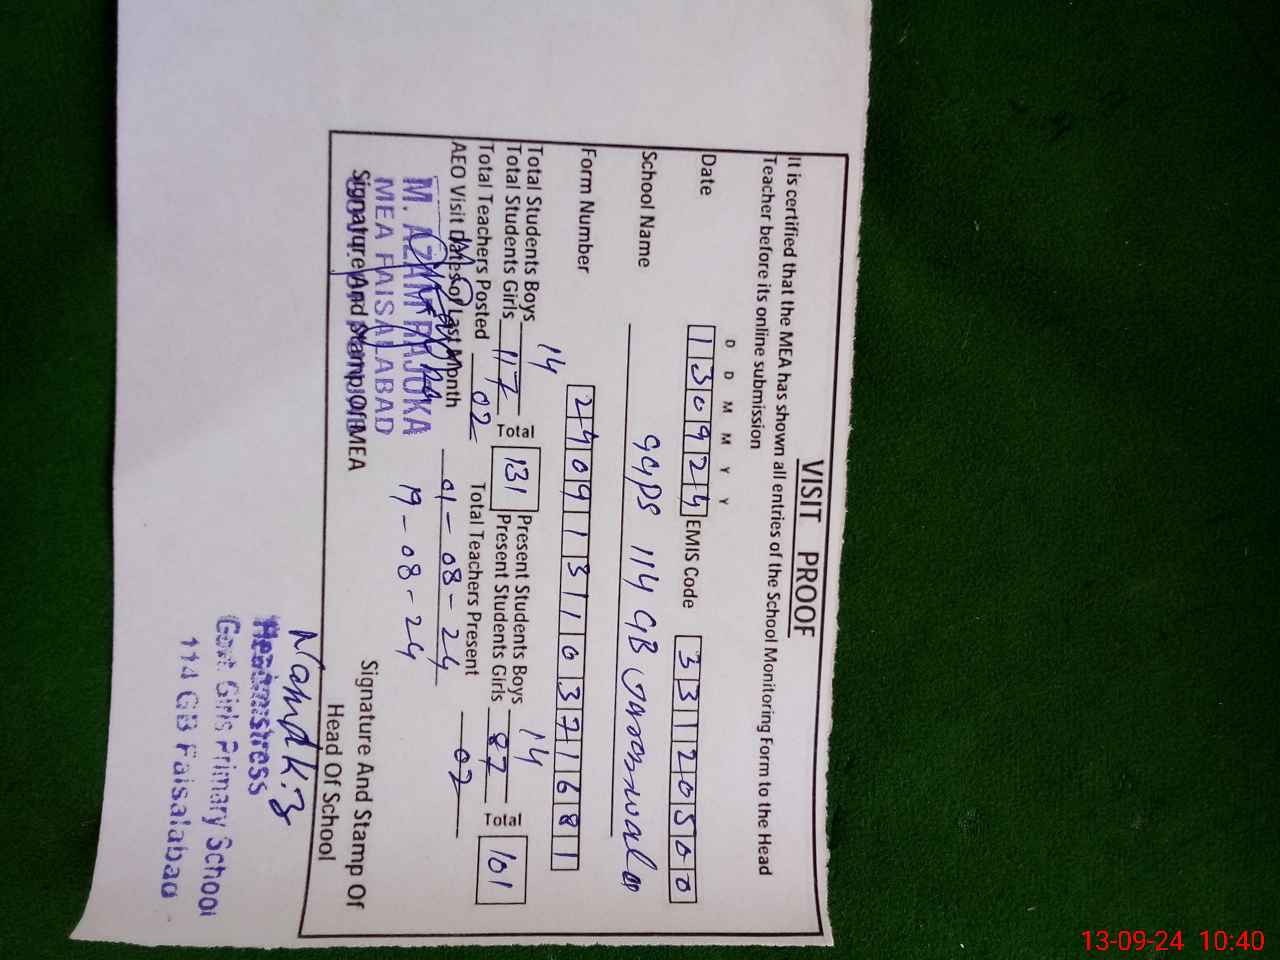 VISIT PROOF
It is certified that the MEA has shown all entries of the School Monitoring Form to the Head
Teacher before its online submission
D D M M Y Y
Date 130924 EMIS Code 33120500
School Name GGPS 114 GB
Form Number 240913110371681
Total Students Boys 14 Total 131 Present Students Boys 14 Total 101
Total Students Girls 117 Present Students Girls 87
Total Teachers Posted 02 Total Teachers Present 02
AEO Visit Dates of Last Month 01-08-24
19-08-24
M. AZAM RAJOKA
MEA FAISALABAD
Signature And Stamp Of MEA
Signature And Stamp Of
Head Of School
Headmistress
Govt. Girls Primary School
114 GB Faisalabad
13-09-24 10:40